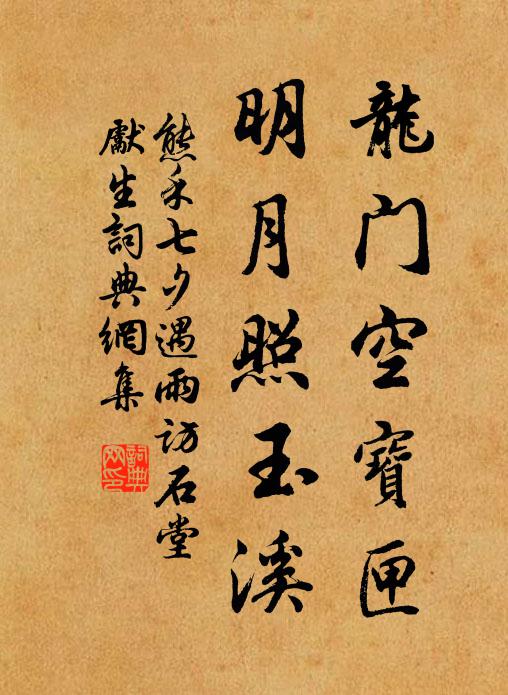 龍门空寶匣
明月照玉溪
熊禾七夕遇雨訪石堂
獻生詞典網集
詞典
网印